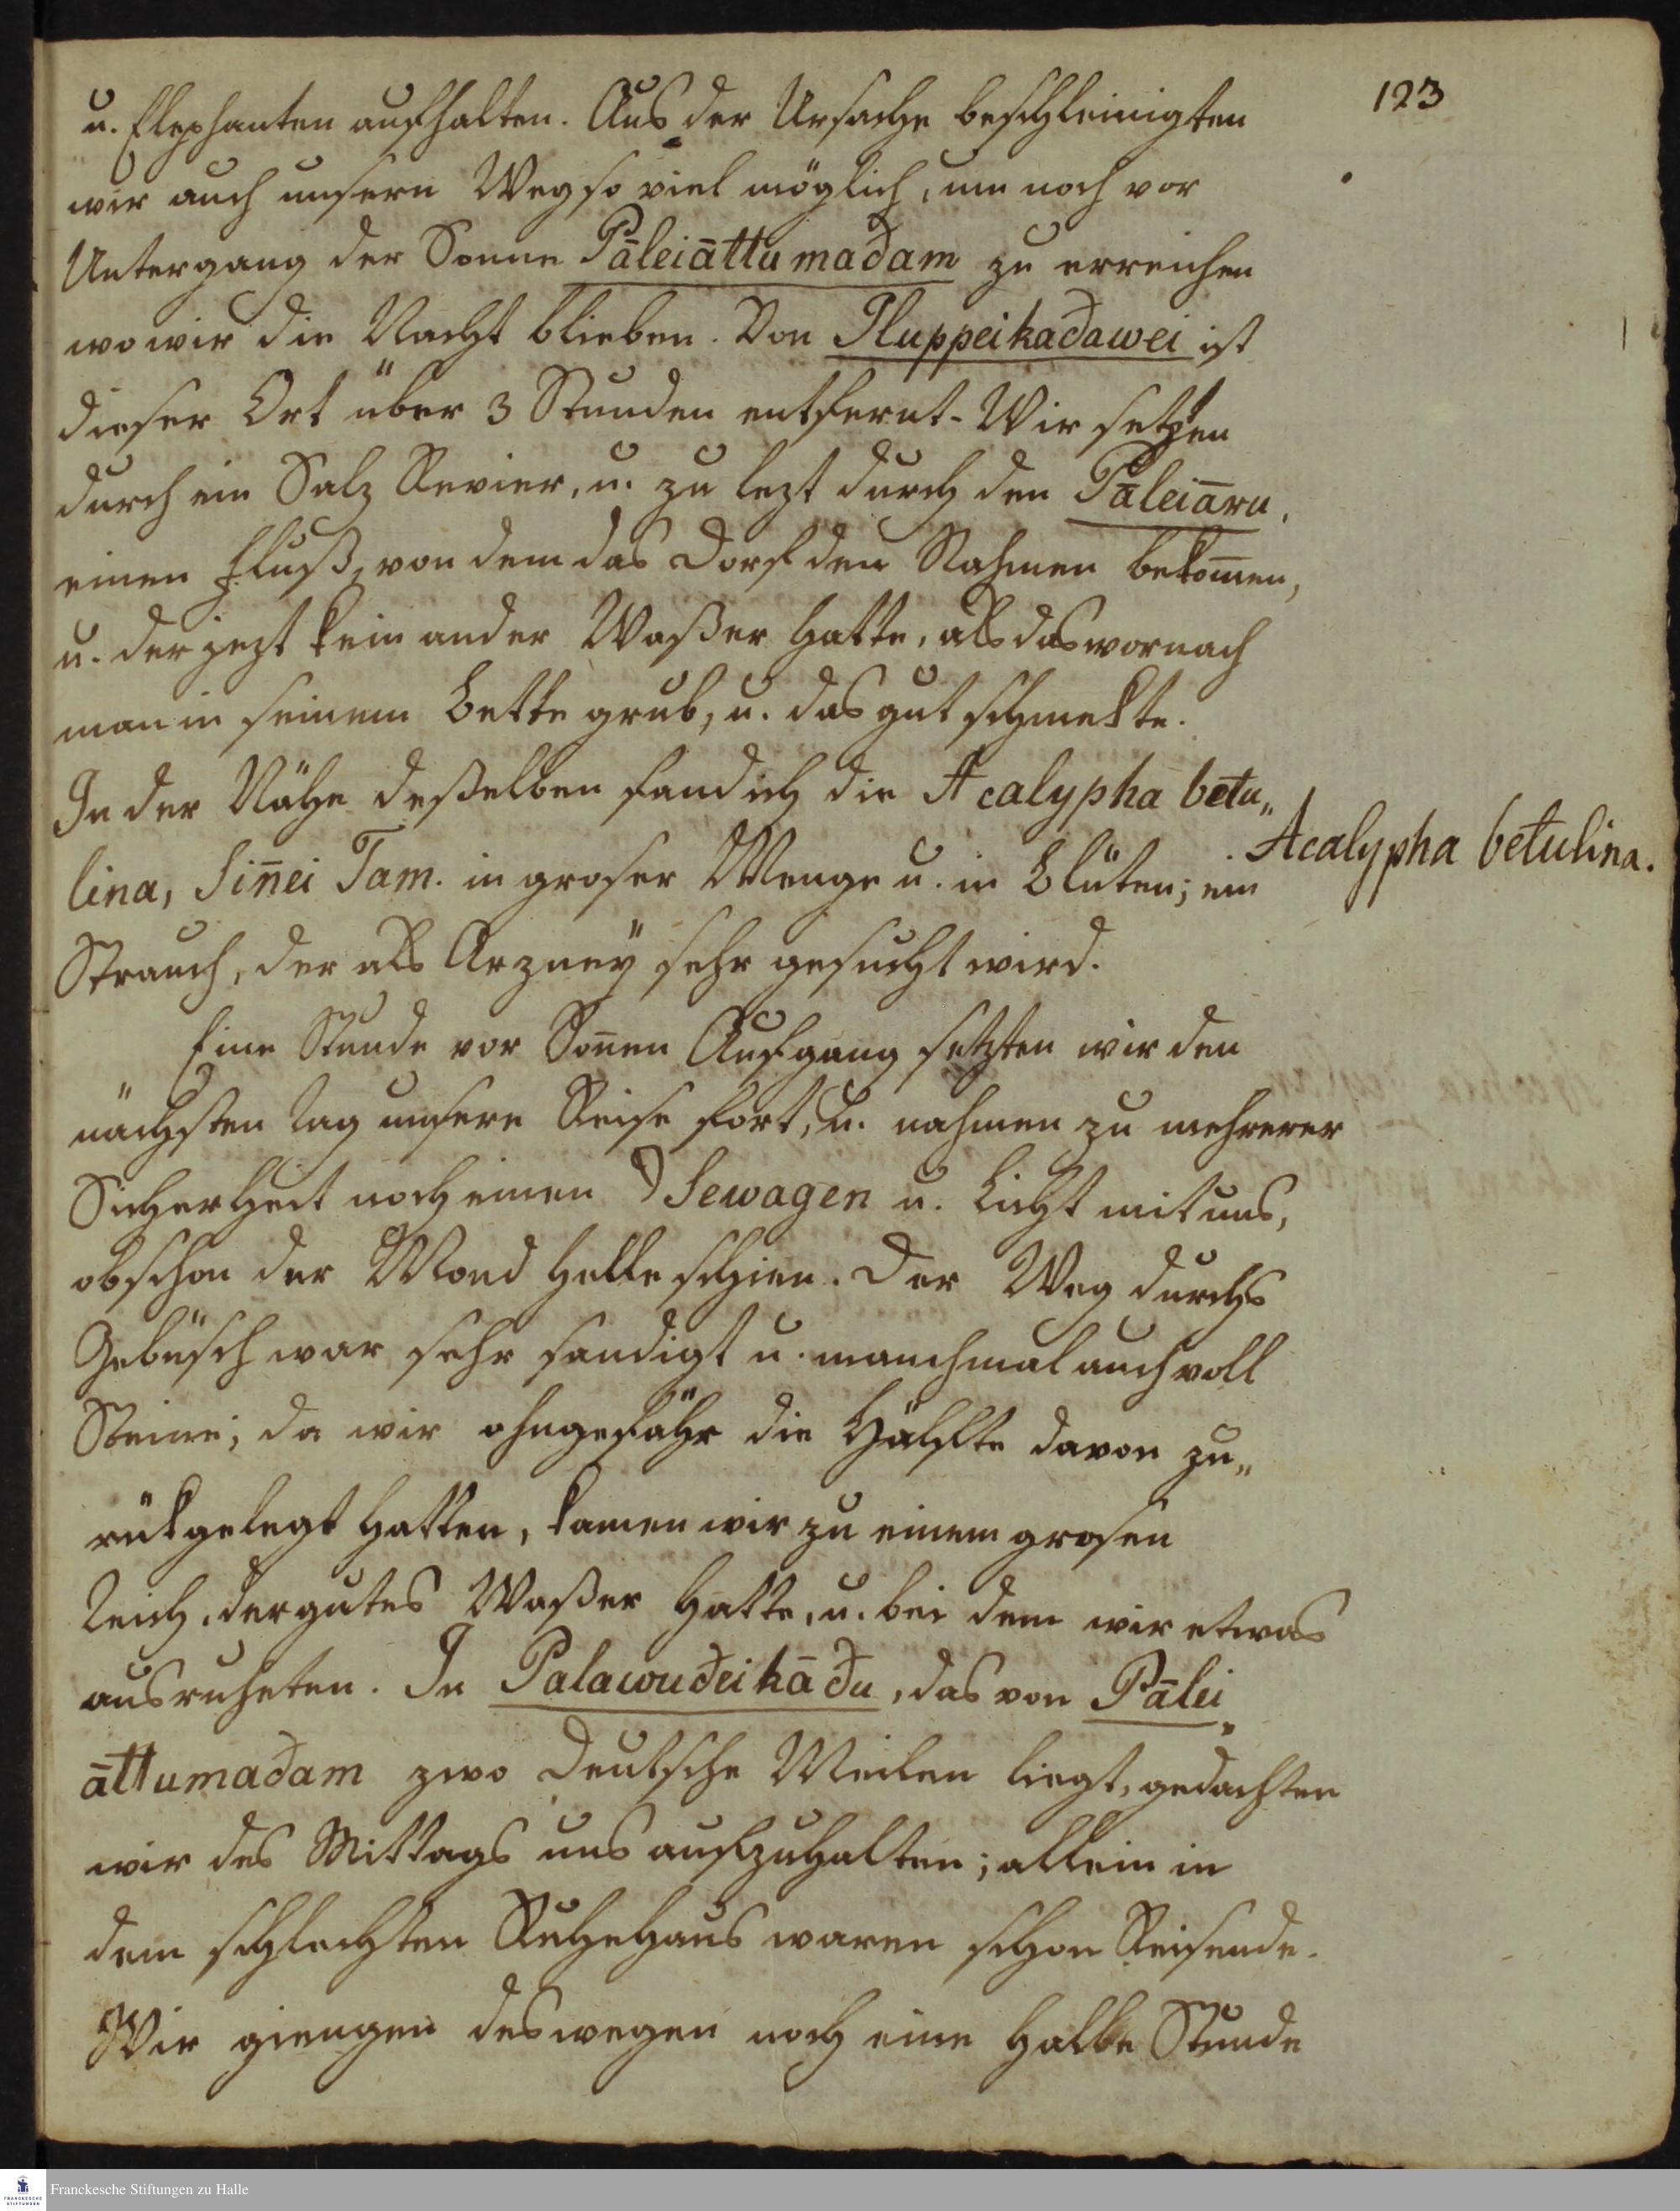 123
u. Elephanten aufhalten. Aus der Ursache beschleinigten
wir auch unsern Weg so viel möglich, um noch vor
Untergang der Sonne Pāleiāttumaðam zu erreichen
wo wir die Nacht blieben. Von Iluppeikaðawei ist
dieser Ort über 3 Stunden entfernt. Wir setzen
durch ein Salz Revier, u. zu lezt durch den Pāleiāru,
einen Fluß, von dem das Dorf den Nahmen bekom̄en,
u. der jezt kein ander Waßer hatte, als das wornach
man in seinem Bette grub, u. das gut schmekte.
In der Nähe deßelben fand ich die Acalypha betu„
lina, Sin̄ei Tam. in groser Menge u. in Blüten; ein
Acalypha betulina.
Strauch, der als Arzney sehr gesucht wird.
Eine Stunde vor Son̄en Aufgang setzten wir den
nächsten Tag unsere Reise fort, u. nahmen zu mehrerer
Sicherheit noch einen Sewagen u. Licht mit uns,
obschon der Mond helle schien. Der Weg durchs
Gebüsch war sehr sandigt u. manchmal auch voll
Steine; da wir ohngefähr die Hälfte davon zu„
rükgelegt hatten, kamen wir zu einem grosen
Teich, der gutes Waßer hatte, u. bei dem wir etwas
ausruheten. In Palawuðeikāðu, das von Pālei„
āttumaðam zwo Deutsche Meilen liegt, gedachten
wir des Mittags uns aufzuhalten; allein in
dem schlechten Ruhehaus waren schon Reisende.
Wir giengen deswegen noch eine halbe Stunde
Franckesche Stiftungen zu Halle
FRANCKESCHE STIFTUNGEN